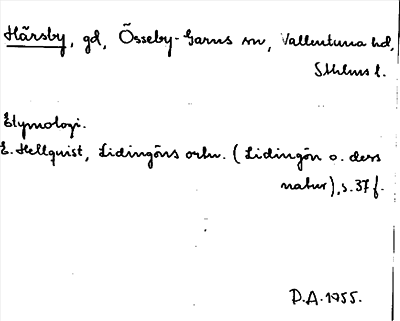 Hårsby, gd, Össeby-Garns sn, Vallentuna hd,
Sthlms l.
Etymologi.
E. Hellquist, Lidingöns ortn. (Lidingön o. dess
natur), s. 37 f.
D.A. 1955.